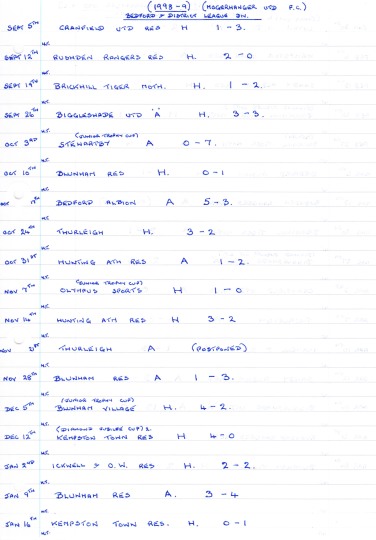 (1998-9) (MOGERHANGER UTD F.C.)
BEDFORD & DISTRICT LEAGUE DN.
SEPT 5TH CRANFIELD UTD RES H 1-3.
H.T.
SEPT 12TH RUSHDEN RANGERS RES H. 2-0
H.T.
SEPT 19TH BRICKHILL TIGER MOTH. H. 1-2.
H.T.
SEPT 26TH BIGGLESWADE UTD "A" H. 3-3.
H.T.
(JUNIOR TROPHY CUP)
OCT 3RD STEWARTBY A 0-7.
H.T.
OCT 10TH BLUNHAM RES H. 0-1
H.T.
OCT 17TH BEDFORD ALBION A 5-3.
H.T.
OCT 24TH THURLEIGH H. 3-2
H.T.
OCT 31ST HUNTING ATH RES A 1-2.
H.T.
(JUNIOR TROPHY CUP)
NOV 7TH OLYMPUS SPORTS H 1-0
H.T.
NOV 14TH HUNTING ATH RES H 3-2
H.T.
NOV 21ST THURLEIGH A (POSTPONED)
H.T.
NOV 28TH BLUNHAM RES A 1-3.
H.T.
(JUNIOR TROPHY CUP)
DEC 5TH BLUNHAM VILLAGE H. 4-2.
H.T.
(DIAMOND JUBILEE CUP) 2.
DEC 12TH KEMPSTON TOWN RES H 4-0
H.T.
JAN 2ND ICKWELL & O.W. RES H. 2-2.
H.T.
JAN 9TH BLUNHAM RES A. 3-4
H.T.
JAN 16TH KEMPSTON TOWN RES. H. 0-1
H.T.